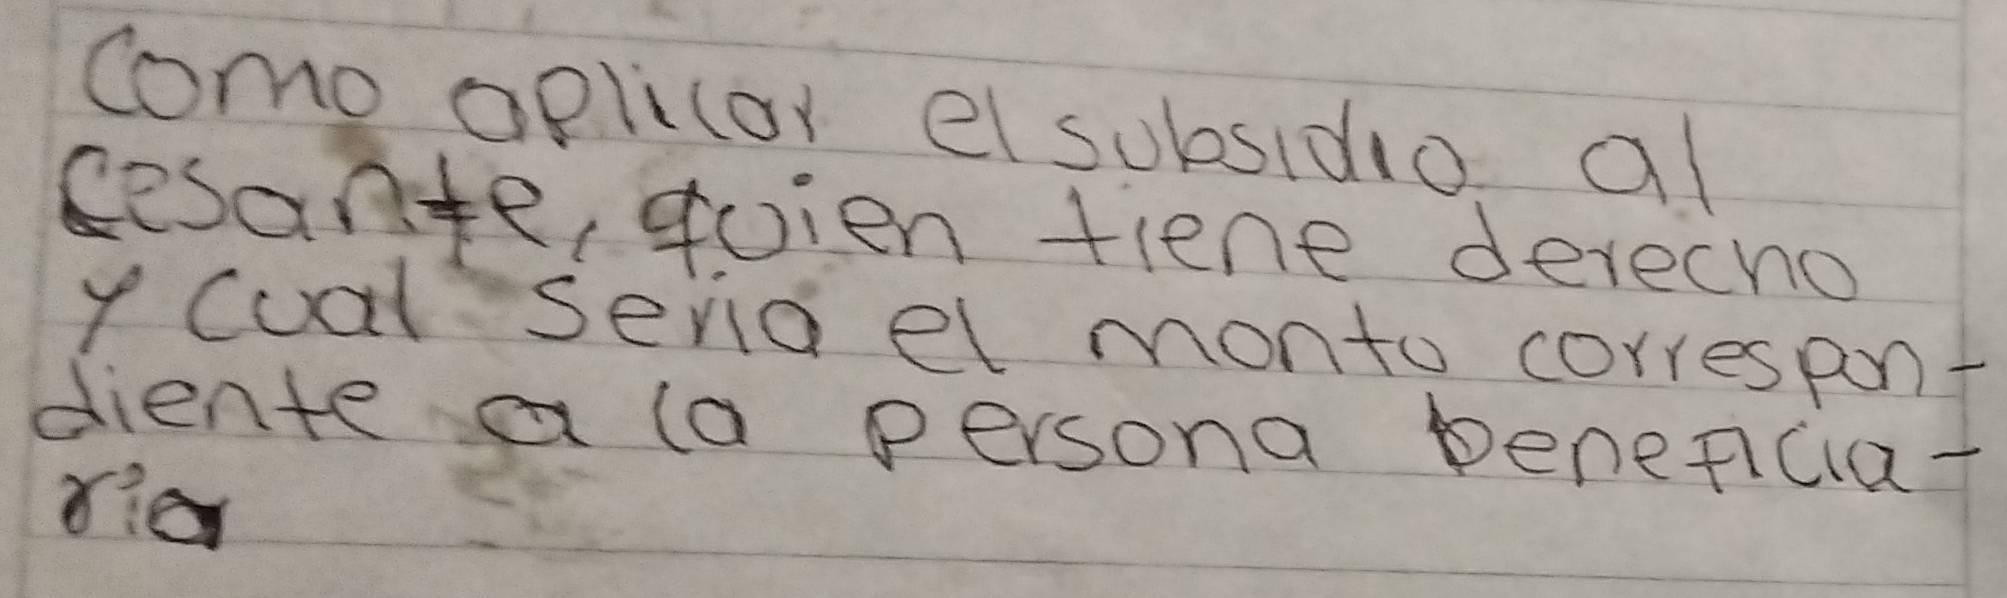 Como aplicar el subsidio al
cesante, quien tiene derecho
y cual seria el monto correspon-
diente a la persona beneficia-
ria